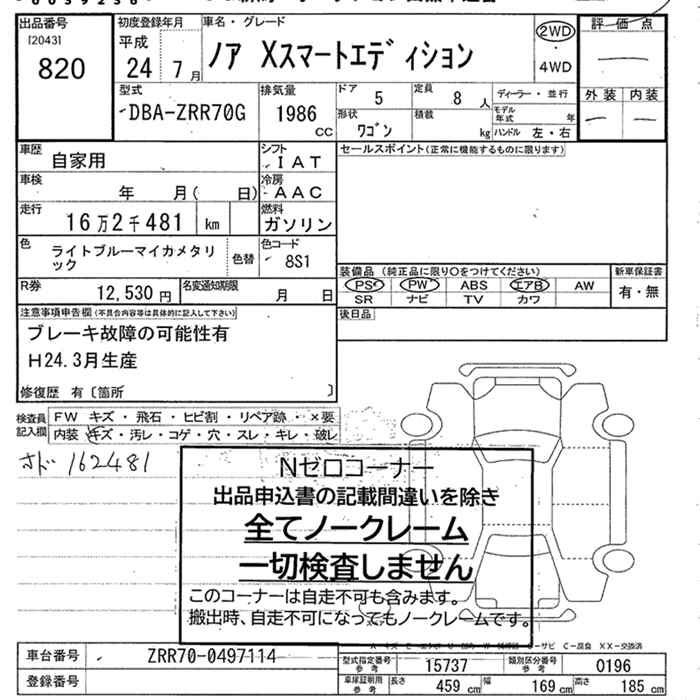 出品番号
[2043]
820
初度登録年月
平成
24 7月
車名・グレード
ノア Xスマートエディション
2WD
・
4WD
評価点
外装 内装
型式
DBA-ZRR70G
排気量
1986
CC
ドア
5
定員
8 人
ディーラー・並行
形状
ワゴン
積載
kg
モデル年式 年
ハンドル 左・右
車歴
自家用
シフト
IAT
セールスポイント(正常に機能するものに限ります)
車検
年 月( 日)
冷房
AAC
走行
16万2千481 km
燃料
ガソリン
色
ライトブルーマイカメタリック
色替
色コード
8S1
装備品(純正品に限り〇をつけてください)
新車保証書
PS PW ABS エアB AW
有・無
SR ナビ TV カワ
R券
12,530 円
名変通知期限
月 日
後日品
注意事項申告欄(不具合内容等は具体的に記入して下さい)
ブレーキ故障の可能性有
H24.3月生産
修復歴 有〔箇所 〕
検査員記入欄
FW キズ・飛石・ヒビ割・リペア跡・×要
内装 キズ・汚レ・コゲ・穴・スレ・キレ・破レ
オド 162481
Nゼロコーナー
出品申込書の記載間違いを除き
全てノークレーム
一切検査しません
このコーナーは自走不可も含みます。
搬出時、自走不可になってもノークレームです。
車台番号
ZRR70-0497114
登録番号
型式指定番号
参考
15737
類別区分番号
参考
0196
車塚証明用
参考
長さ
459 cm
幅
169 cm
高さ
185 cm